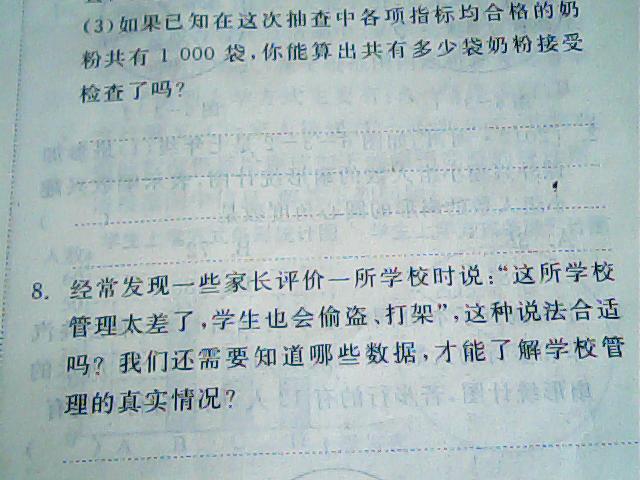 (3)如果已知在这次抽查中各项指标均合格的奶
粉共有 1 000 袋,你能算出共有多少袋奶粉接受
检查了吗?
8. 经常发现一些家长评价一所学校时说:“这所学校
管理太差了,学生也会偷盗、打架”,这种说法合适
吗? 我们还需要知道哪些数据,才能了解学校管
理的真实情况?